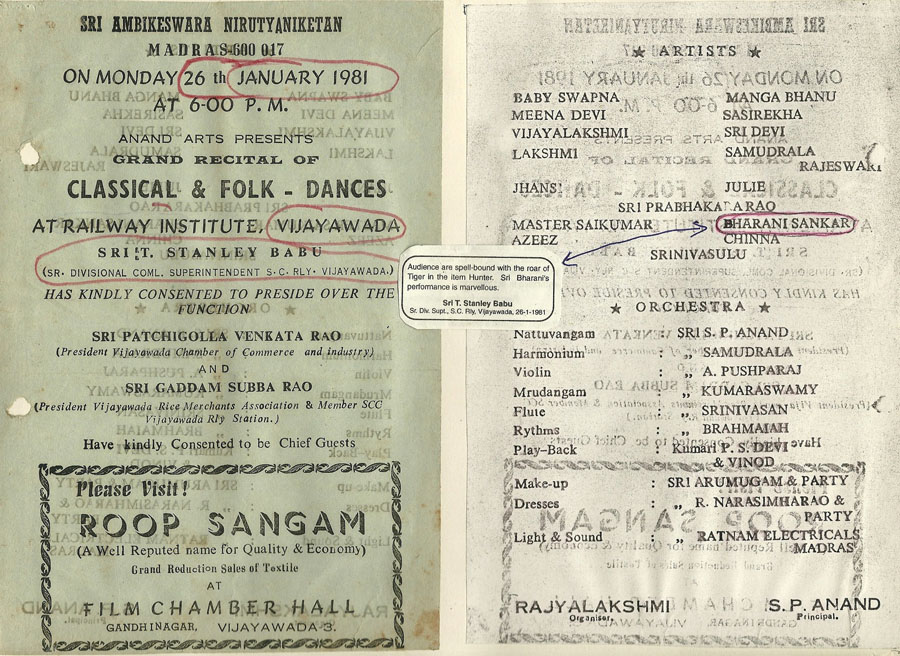 SRI AMBIKESWARA NIRUTYANIKETAN
MADRAS-600 017
ON MONDAY 26 th JANUARY 1981
AT 6-00 P. M.
ANAND ARTS PRESENTS
GRAND RECITAL OF
CLASSICAL & FOLK - DANCES
AT RAILWAY INSTITUTE, VIJAYAWADA
SRI T. STANLEY BABU
(SR. DIVISIONAL COML. SUPERINTENDENT S. C. RLY. VIJAYAWADA.)
HAS KINDLY CONSENTED TO PRESIDE OVER THE
FUNCTION
SRI PATCHIGOLLA VENKATA RAO
(President Vijayawada Chamber of Commerce and industry)
AND
SRI GADDAM SUBBA RAO
(President Vijayawada Rice Merchants Association & Member SCC
Vijayawada Rly Station.)
Have kindly Consented to be Chief Guests
Please Visit!
ROOP SANGAM
(A Well Reputed name for Quality & Economy)
Grand Reduction Sales of Textile
AT
FILM CHAMBER HALL
GANDHINAGAR, VIJAYAWADA-3.
Audience are spell-bound with the roar of
Tiger in the item Hunter. Sri Bharani's
performance is marvellous.
Sri T. Stanley Babu
Sr. Div. Supt., S.C. Rly, Vijayawada, 26-1-1981
★ ARTISTS ★
BABY SWAPNA MANGA BHANU
MEENA DEVI SASIREKHA
VIJAYALAKSHMI SRI DEVI
LAKSHMI SAMUDRALA
RAJESWARI
JHANSI JULIE
SRI PRABHAKARA RAO
MASTER SAIKUMAR BHARANI SANKAR
AZEEZ CHINNA
SRINIVASULU
★ ORCHESTRA ★
Nattuvangam : SRI S. P. ANAND
Harmonium : „ SAMUDRALA
Violin : „ A. PUSHPARAJ
Mrudangam : „ KUMARASWAMY
Flute : „ SRINIVASAN
Rythms : „ BRAHMAIAH
Play-Back : Kumari P. S. DEVI
& VINOD
Make-up : SRI ARUMUGAM & PARTY
Dresses : „ R. NARASIMHARAO &
PARTY
Light & Sound : „ RATNAM ELECTRICALS
MADRAS
RAJYALAKSHMI S.P. ANAND
Organiser. Principal.